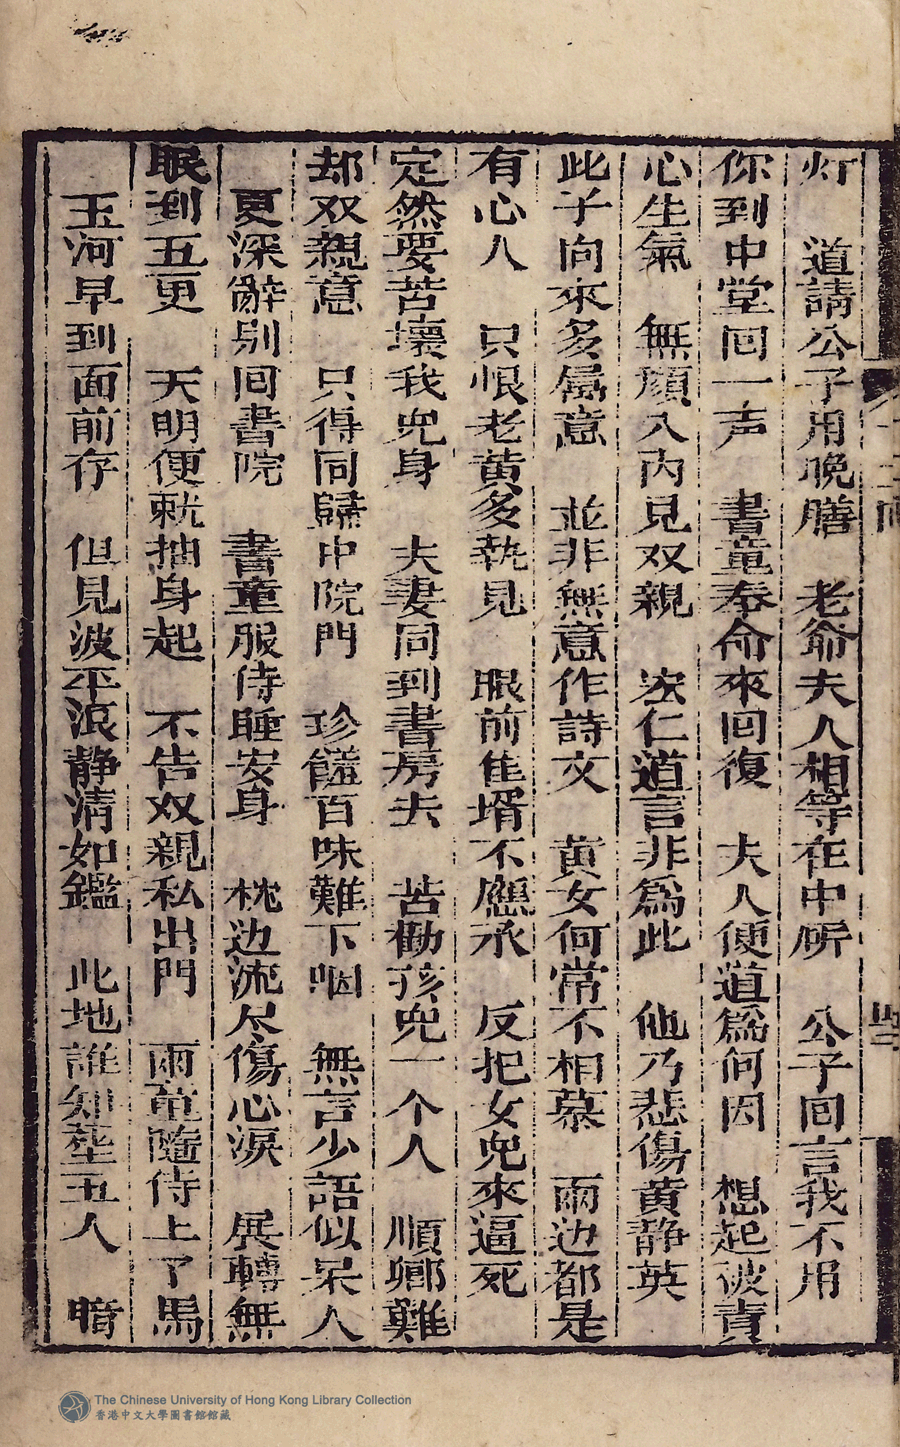 灯　道請公子用晚膳　老爺夫人相等在中所　公子回言我不用
你到中堂回一声　書童奉命來回復　夫人便道為何因　想起被責
心生氣　無顔入內見双親　宏仁道言非為此　他乃悲傷黄静英
此子向來多属意　並非無意作詩文　黄女何常不相慕　兩边都是
有心人　只恨老黄多執見　眼前佳壻不應承　反把女兒來逼死
定然要苦壞我兒身　夫妻同到書房去　苦勸孩兒一个人　順鄉難
却双親意　只得同歸中院門　珍饈百味難下咽　無言少語似呆人
更深辭別回書院　書童服侍睡安身　枕边流尽傷心淚　展轉無
眠到五更　天明便就抽身起　不告双親私出門　兩童隨侍上了馬
玉河早到面前存　但見波平浪静清如鑑　此地誰知塟玉人　暗
The Chinese University of Hong Kong Library Collection
香港中文大學圖書館館藏